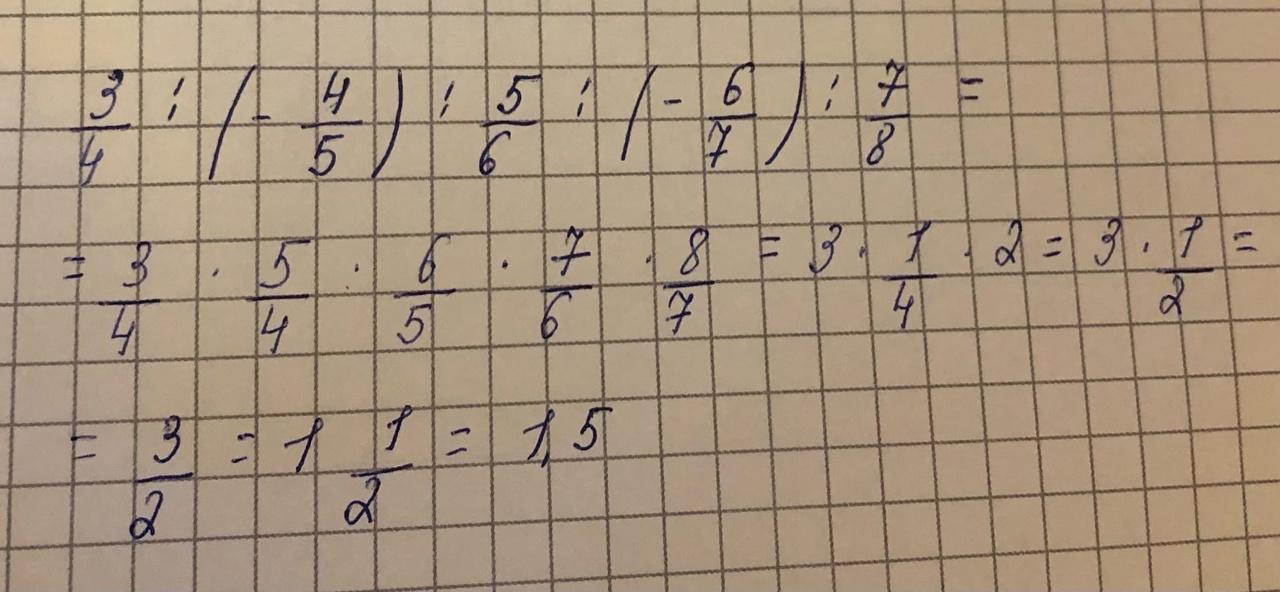 3/4 : (- 4/5) : 5/6 : (- 6/7) : 7/8 =
= 3/4 · 5/4 · 6/5 · 7/6 · 8/7 = 3 · 1/4 · 2 = 3 · 1/2 =
= 3/2 = 1 1/2 = 1,5